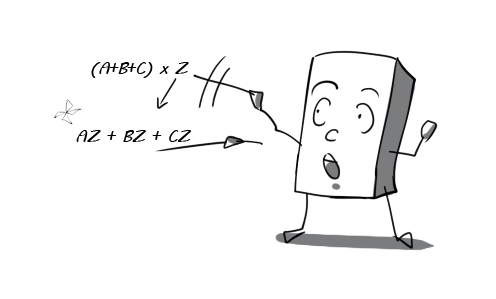 (A+B+C) x Z
AZ + BZ + CZ